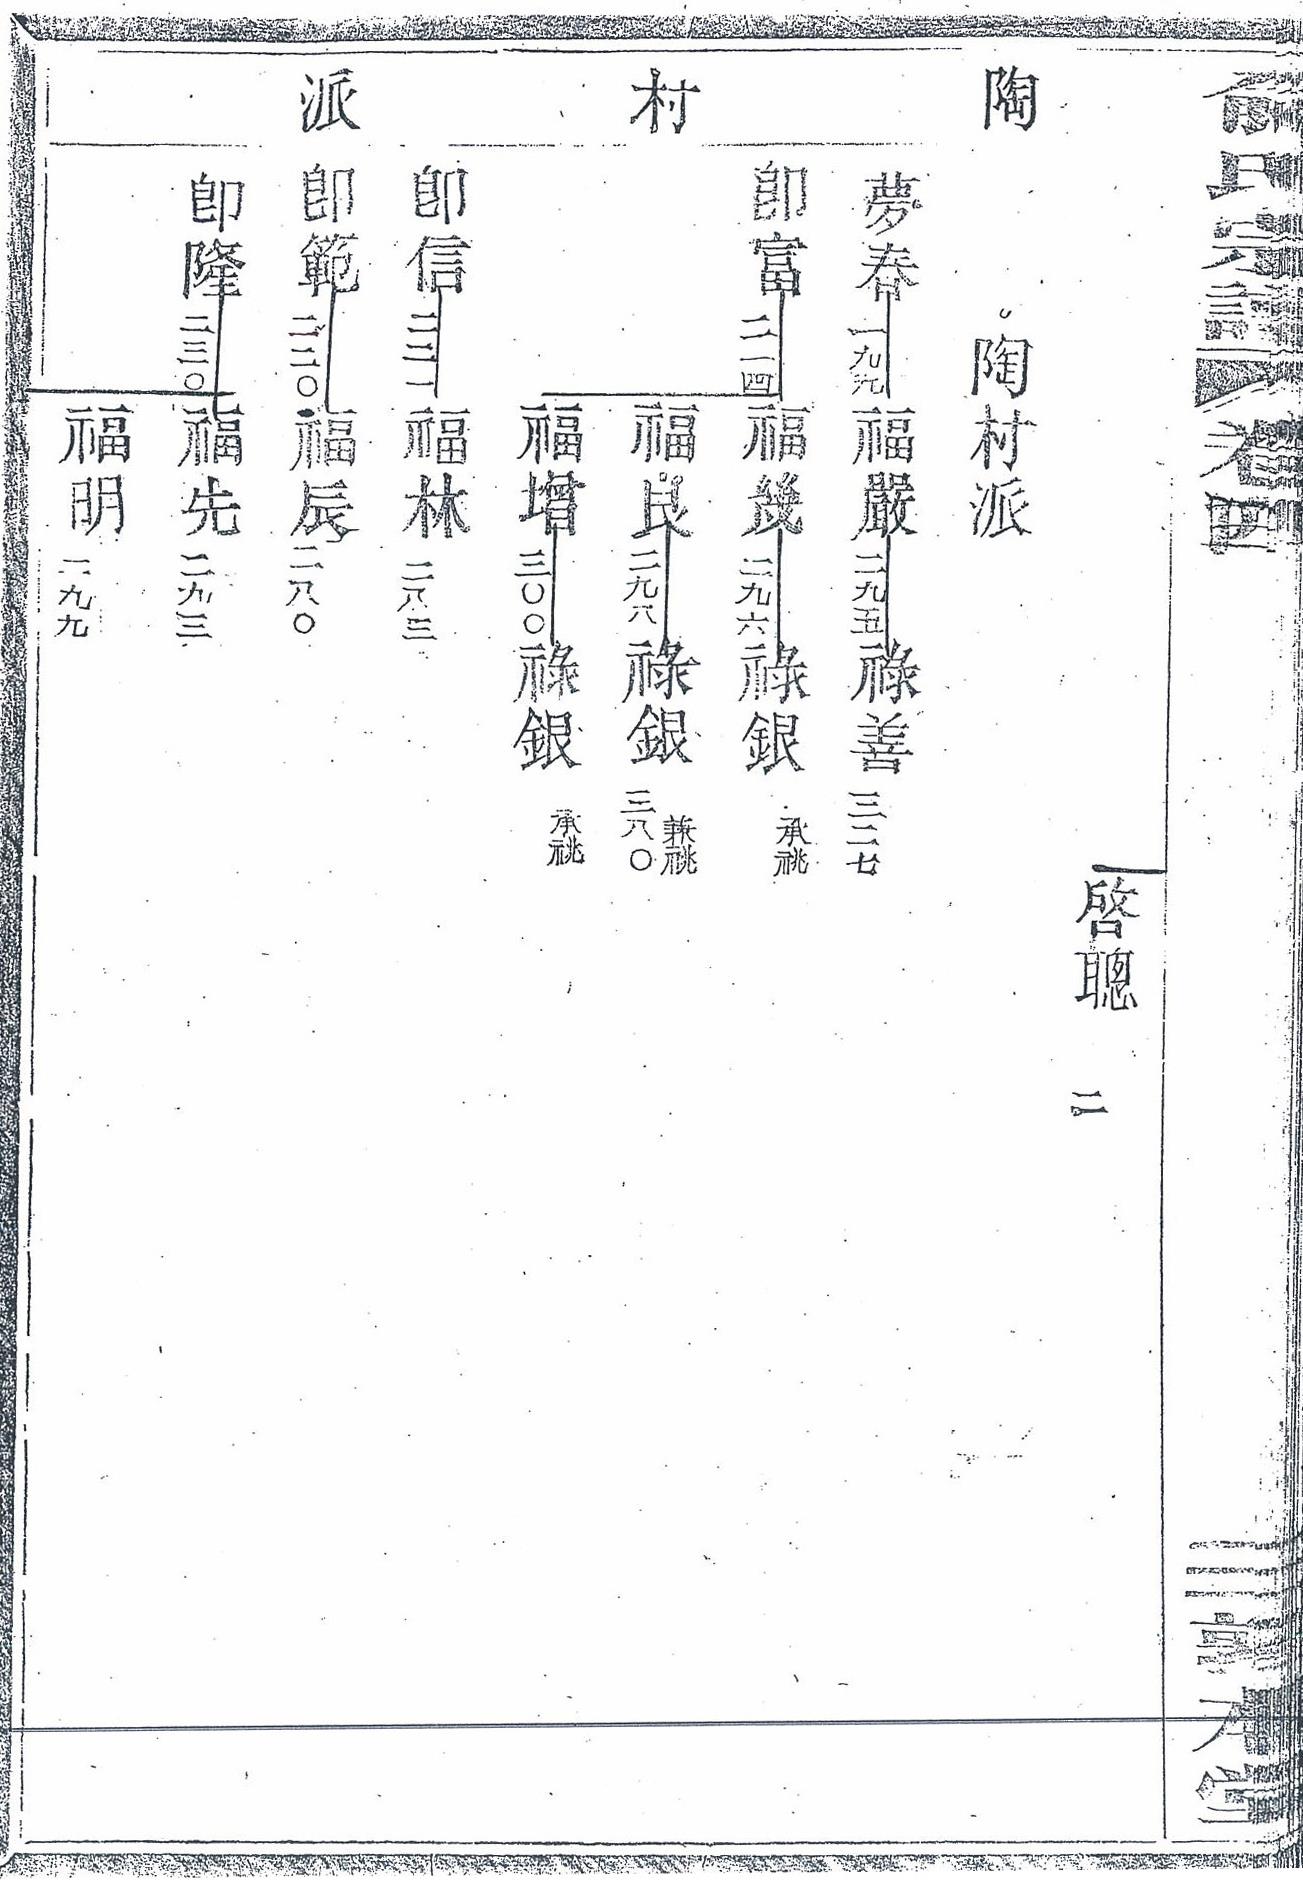 氏宗譜 卷四
啓聰 二
陶村派
陶村派
夢春 一九九 福嚴 二九五 祿善 三二七
卽富 二一四 福幾 二九六 祿銀 承祧
福良 二九八 祿銀 三八〇 兼祧
福增 三〇〇 祿銀 承祧
卽信 二二一 福林 二八三
卽範 二二〇 福辰 二八〇
卽隆 二三〇 福先 二九三
福明 二九九